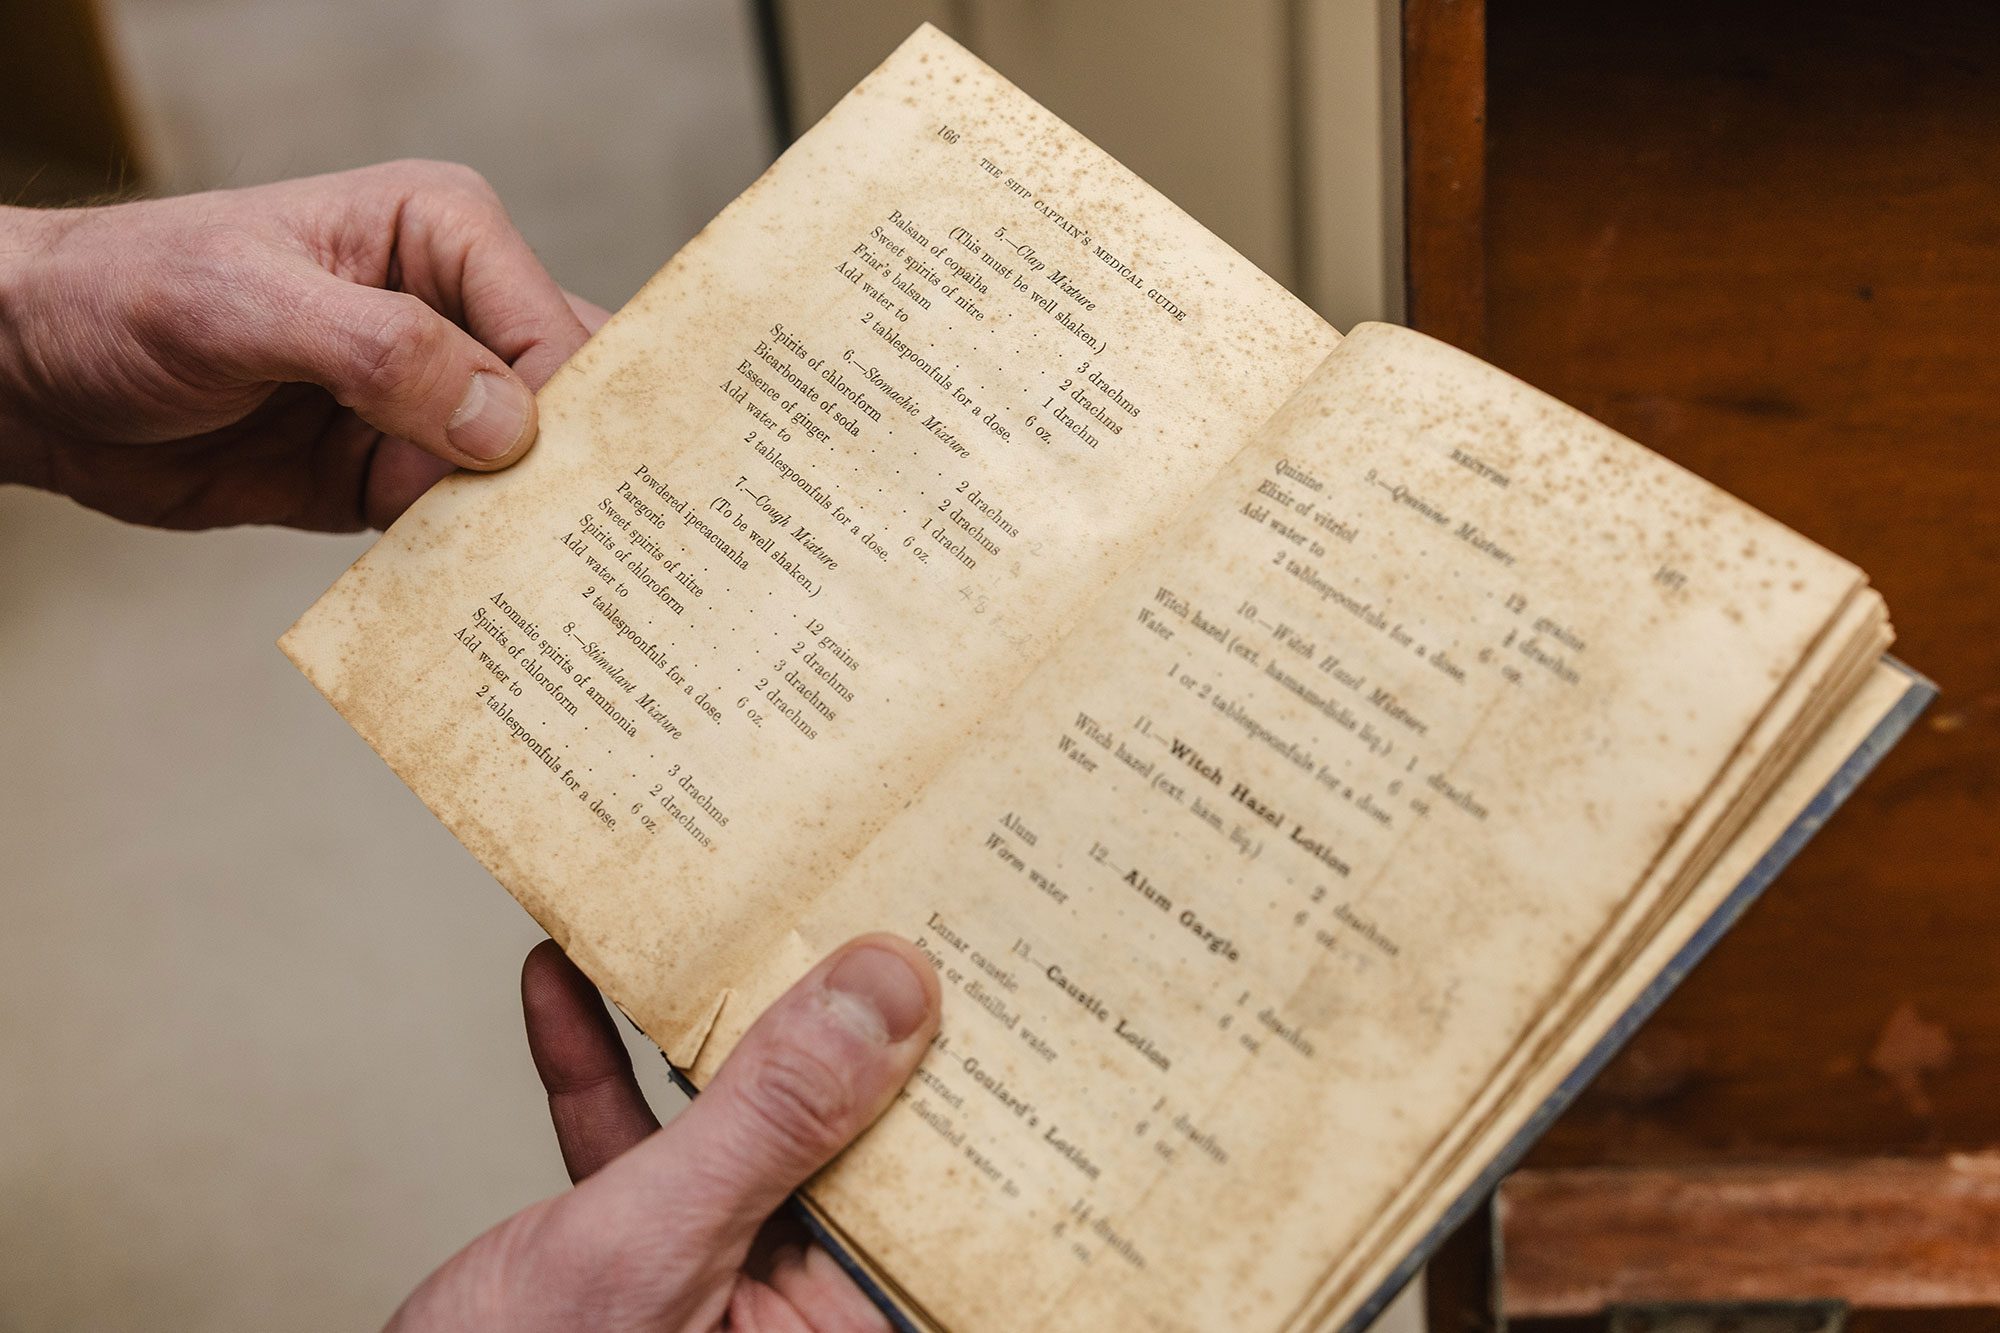 166 THE SHIP CAPTAIN'S MEDICAL GUIDE
5.—Clap Mixture
(This must be well shaken.)
Balsam of copaiba . . . . 3 drachms
Sweet spirits of nitre . . . . 2 drachms
Friar's balsam . . . . 1 drachm
Add water to . . . . 6 oz.
2 tablespoonfuls for a dose.
6.—Stomachic Mixture
Spirits of chloroform . . . . 2 drachms
Bicarbonate of soda . . . . 2 drachms
Essence of ginger . . . . 1 drachm
Add water to . . . . 6 oz.
2 tablespoonfuls for a dose.
7.—Cough Mixture
(To be well shaken.)
Powdered ipecacuanha . . . . 12 grains
Paregoric . . . . 2 drachms
Sweet spirits of nitre . . . . 3 drachms
Spirits of chloroform . . . . 2 drachms
Add water to . . . . 6 oz.
2 tablespoonfuls for a dose.
8.—Stimulant Mixture
Aromatic spirits of ammonia . . . . 3 drachms
Spirits of chloroform . . . . 2 drachms
Add water to . . . . 6 oz.
2 tablespoonfuls for a dose.
RECIPES 167
9.—Quinine Mixture
Quinine . . . . 12 grains
Elixir of vitriol . . . . drachm
Add water to . . . . 6 oz.
2 tablespoonfuls for a dose.
10.—Witch Hazel Mixture
Witch hazel (ext. hamamelidis liq.) 1 drachm
Water . . . . 6 oz.
1 or 2 tablespoonfuls for a dose.
11.—Witch Hazel Lotion
Witch hazel (ext. ham. liq.) . . . . 2 drachms
Water . . . . 6 oz.
12.—Alum Gargle
Alum . . . . 1 drachm
Warm water . . . . 6 oz.
13.—Caustic Lotion
Lunar caustic . . . . 1 drachm
Rain or distilled water . . . . 6 oz.
14.—Goulard's Lotion
extract . . . . 1½ drachm
or distilled water to . . . . oz.